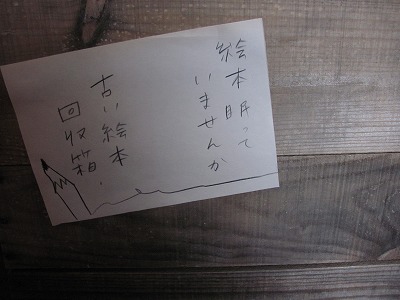 絵本眠って
いませんか
古い絵本
回収箱.